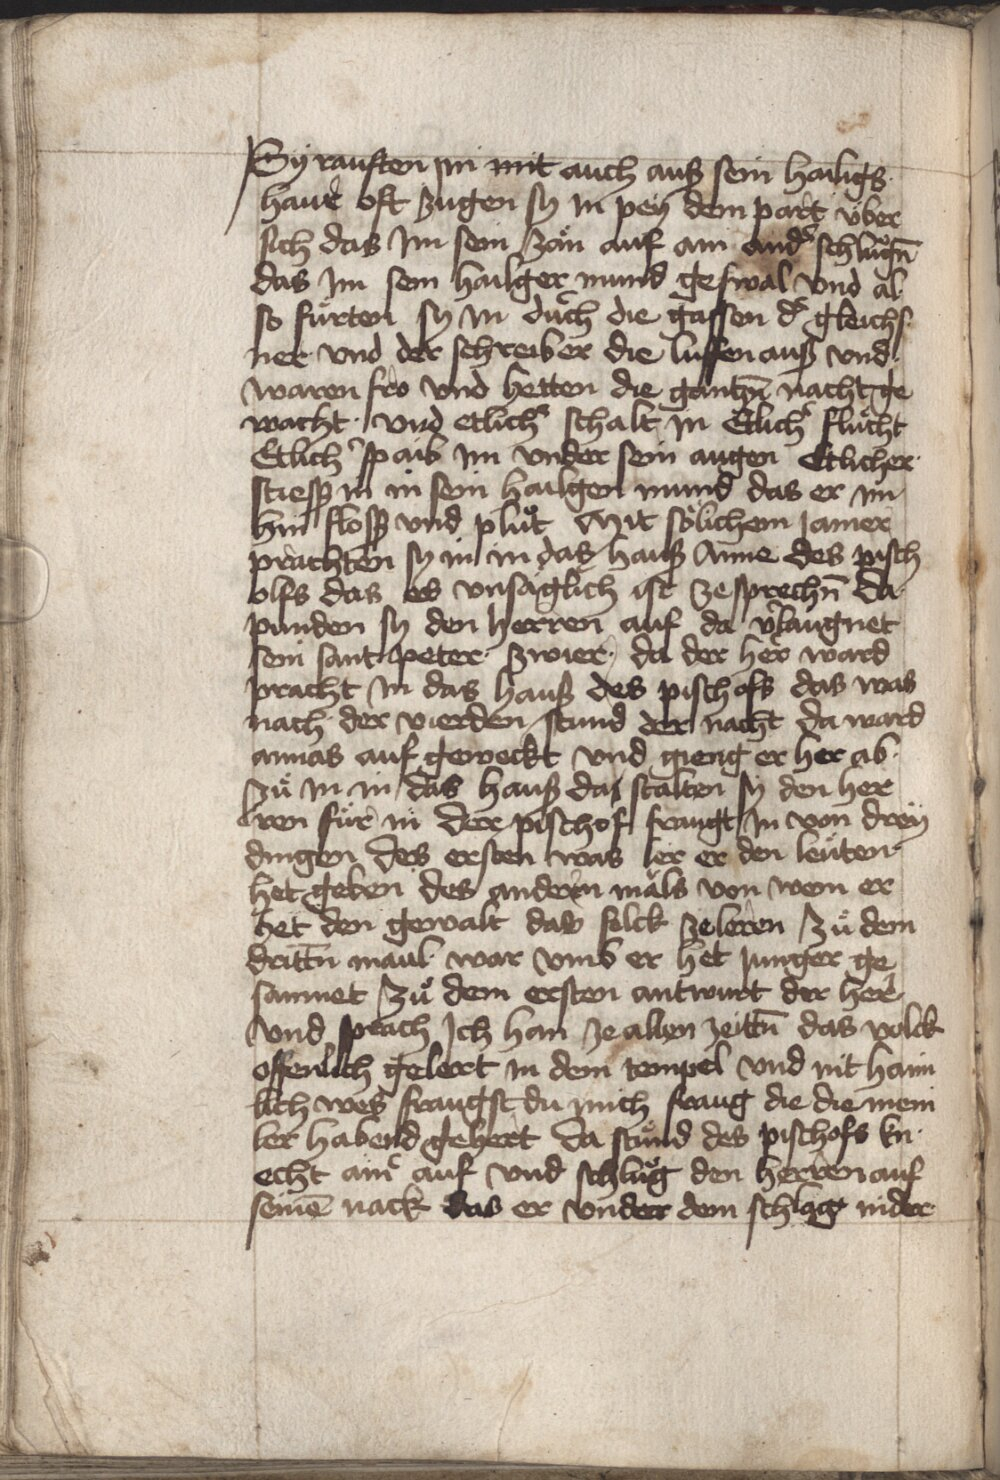 Sy rauften im mit auch auß sein hailigs
haur̉ oft zugen sy in pey dem part über
sich das Im sein zän auf ain and̉ schlůgn̄
das Im sein hailger mund geswal vnd al
so fürten sy in duͨch die gassen d̉ gleichs
ner vnd der schreiber die luffen auß vnd
waren fro vnd hetten die gantzn̄ nacht ge
wacht vnd etlich̉ schalt in Etlich̉ fluͦcht
Etlich̉ spaib im vnder sein augen Etlicher
stiess in in sein hailgen mund das er im
hin floss vnd pluͦt Mit sölichem Jamer
prachten sy in in das hauß Anne des pisch
olfs das es vnsäglich ist ze sprechn̄ Da
punden sy den herren auf da v̉laugnet
sein sant peter zwier da der her̉ ward
pracht in das hauß des pischofs das was
nach der vierden stund der nacht da ward
annas auf geweckt vnd gieng er her ab
zuͦ in in das hauß da stalten sy den her
ren für in Der pischof fraugt in von drey
dingen Des ersten was ler er den leüten
het geben des andern mäls von wem er
het den gewalt das folck ze leren zuͦ dem
drittn̄ maul war vmb er het Junger ge
samnet zuͦ dem ersten antwurt der her̉
vnd sprach Ich han ze allen zeittn̄ das volck
offenlich gelert in dem tempel vnd nit haim
lich wes fraugst du mich fraug die die mein
ler habend gehert Da stuͦnd des pischofs kn
echt ain̉ auf vnd schluͦg den herren auf
seinē nack das er vnder dem schlag nider